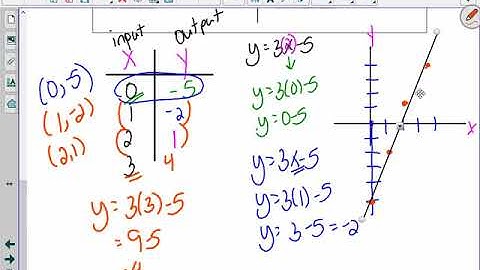 input output
X Y
0 -5
1 -2
2 1
3 4
(0,-5)
(1,-2)
(2,1)
y=3(3)-5
=9-5
y=3(x)-5
y=3(0)-5
y=0-5
y=3x-5
y=3(1)-5
y=3-5=-2
y
x